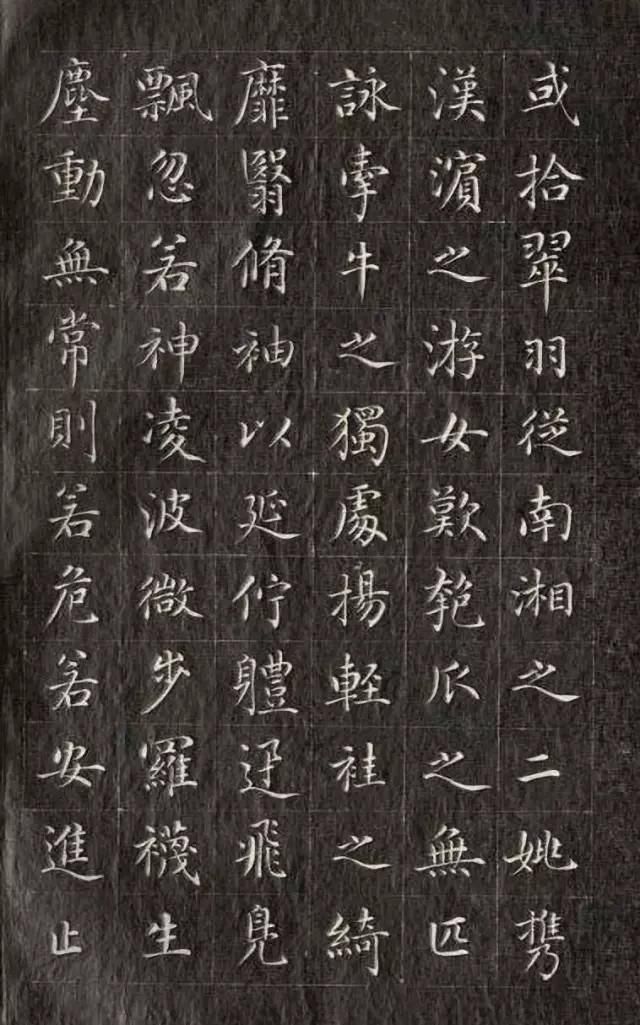 或拾翠羽從南湘之二姚携
漢濱之游女歎匏瓜之無匹
詠牽牛之獨處揚輕袿之綺
靡翳脩袖以延佇體迅飛鳧
飄忽若神凌波微步羅襪生
塵動無常則若危若安進止